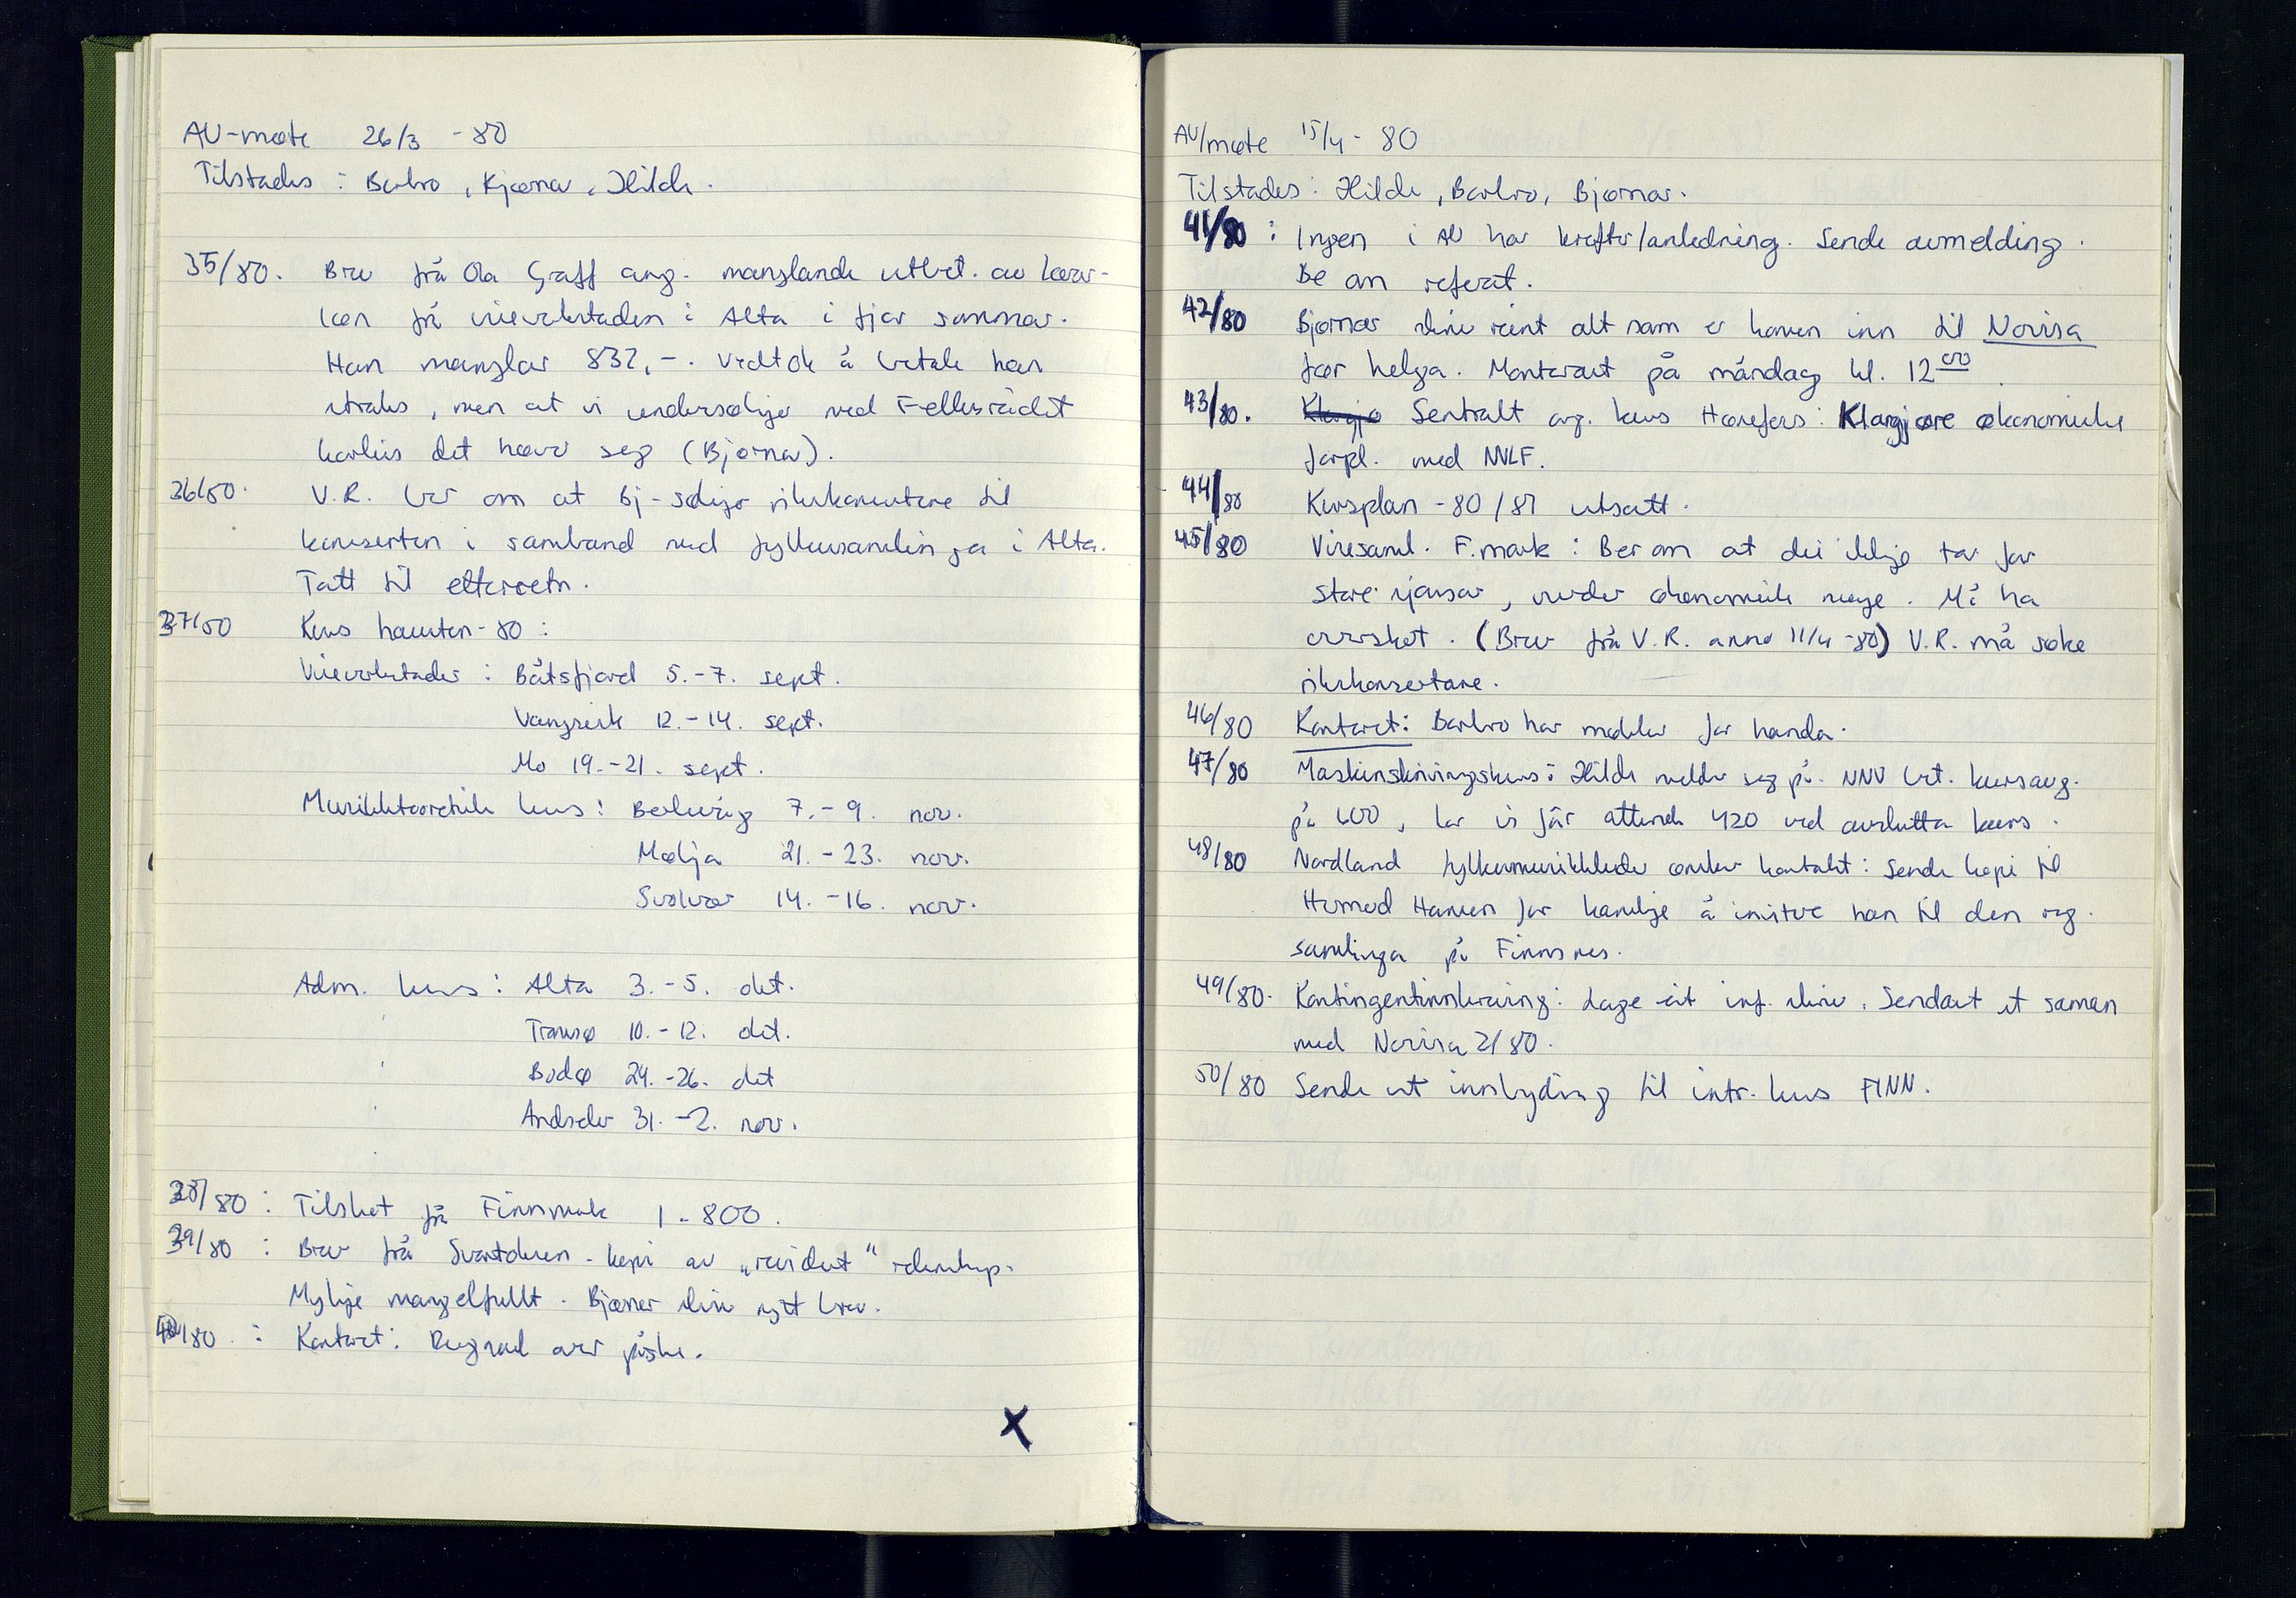 AU-møte 26/3 -80
Tilstades : Barbro, Kjørnar, Hilde.
35/80. Brev frå Ola Graff ang. manglande utbet. av honor-
frå viseverkstaden i Alta i fjor sommar.
Han manglar 832,-. Vedtok å betale han
straks, men at vi undersøkje med Fellesrådet
korleis det haver seg (Bjørnar).
36/80. V.R. ber om at Bj- søkje rikskonsertane til
konserten i samband med fylkessamlinga i Alta.
Tatt til etterretn.
37/80 Kurs hausten-80 :
Viseverkstader : Båtsfjord 5.-7. sept.
Vangsvik 12.-14. sept.
Mo 19.-21. sept.
Musikkteoretisk kurs : Berlevåg 7.-9. nov.
Målja 21.-23. nov.
Svolvær 14.-16. nov.
Adm. kurs : Alta 3.-5. okt.
Tromsø 10.-12. okt.
Bodø 24.-26. okt
Andselv 31.-2. nov.
38/80 : Tilskot frå Finnmark 1.800.
39/80 : Brev frå Svartoksen - kopi av „revidert" rekneskap.
Mykje mangelfullt. Bjørnar skriv nytt brev.
40/80. : Kontoret: Dugnad over påske.
X
AU/møte 15/4- 80
Tilstades : Hilde, Barbro, Bjørnar.
41/80 : Ingen i AU har krefter/anledning. Sende avmelding.
Be om referat.
42/80 Bjørnar skriv reint alt som er komen inn til Norisa
før helga. Monterast på måndag kl. 12 00.
43/80. Klargjø Sentralt arr. kurs Hønefoss : Klargjøre økonomiske
forpl. med NVLF.
44/80 Kursplan -80/81 utsatt.
45/80 Visesaml. F.mark : Ber om at dei ikkje tar for
store sjansar, vurder økonomisk nøye. Må ha
oversket. (Brev frå V.R. anno 11/4 -80) V.R. må søke
rikskonsertane.
46/80 Kontoret: Barbro har møbler for handa.
47/80 Maskinskrivingskurs : Hilde melder seg på. NNV bet. kursavg.
på 600, for vi får attende 420 ved avslutta kurs.
48/80 Nordland fylkesmusikkleder ønsker kontakt : Sende kopi til
Hansen for kanskje å invitere han til den reg.
samlinga på Finnsnes.
49/80. Kontingentinnkreving : Lage eit inf. skriv. Sendast ut saman
med Norisa 2/80.
50/80 Sende ut innbyding til intr. kurs FINN.